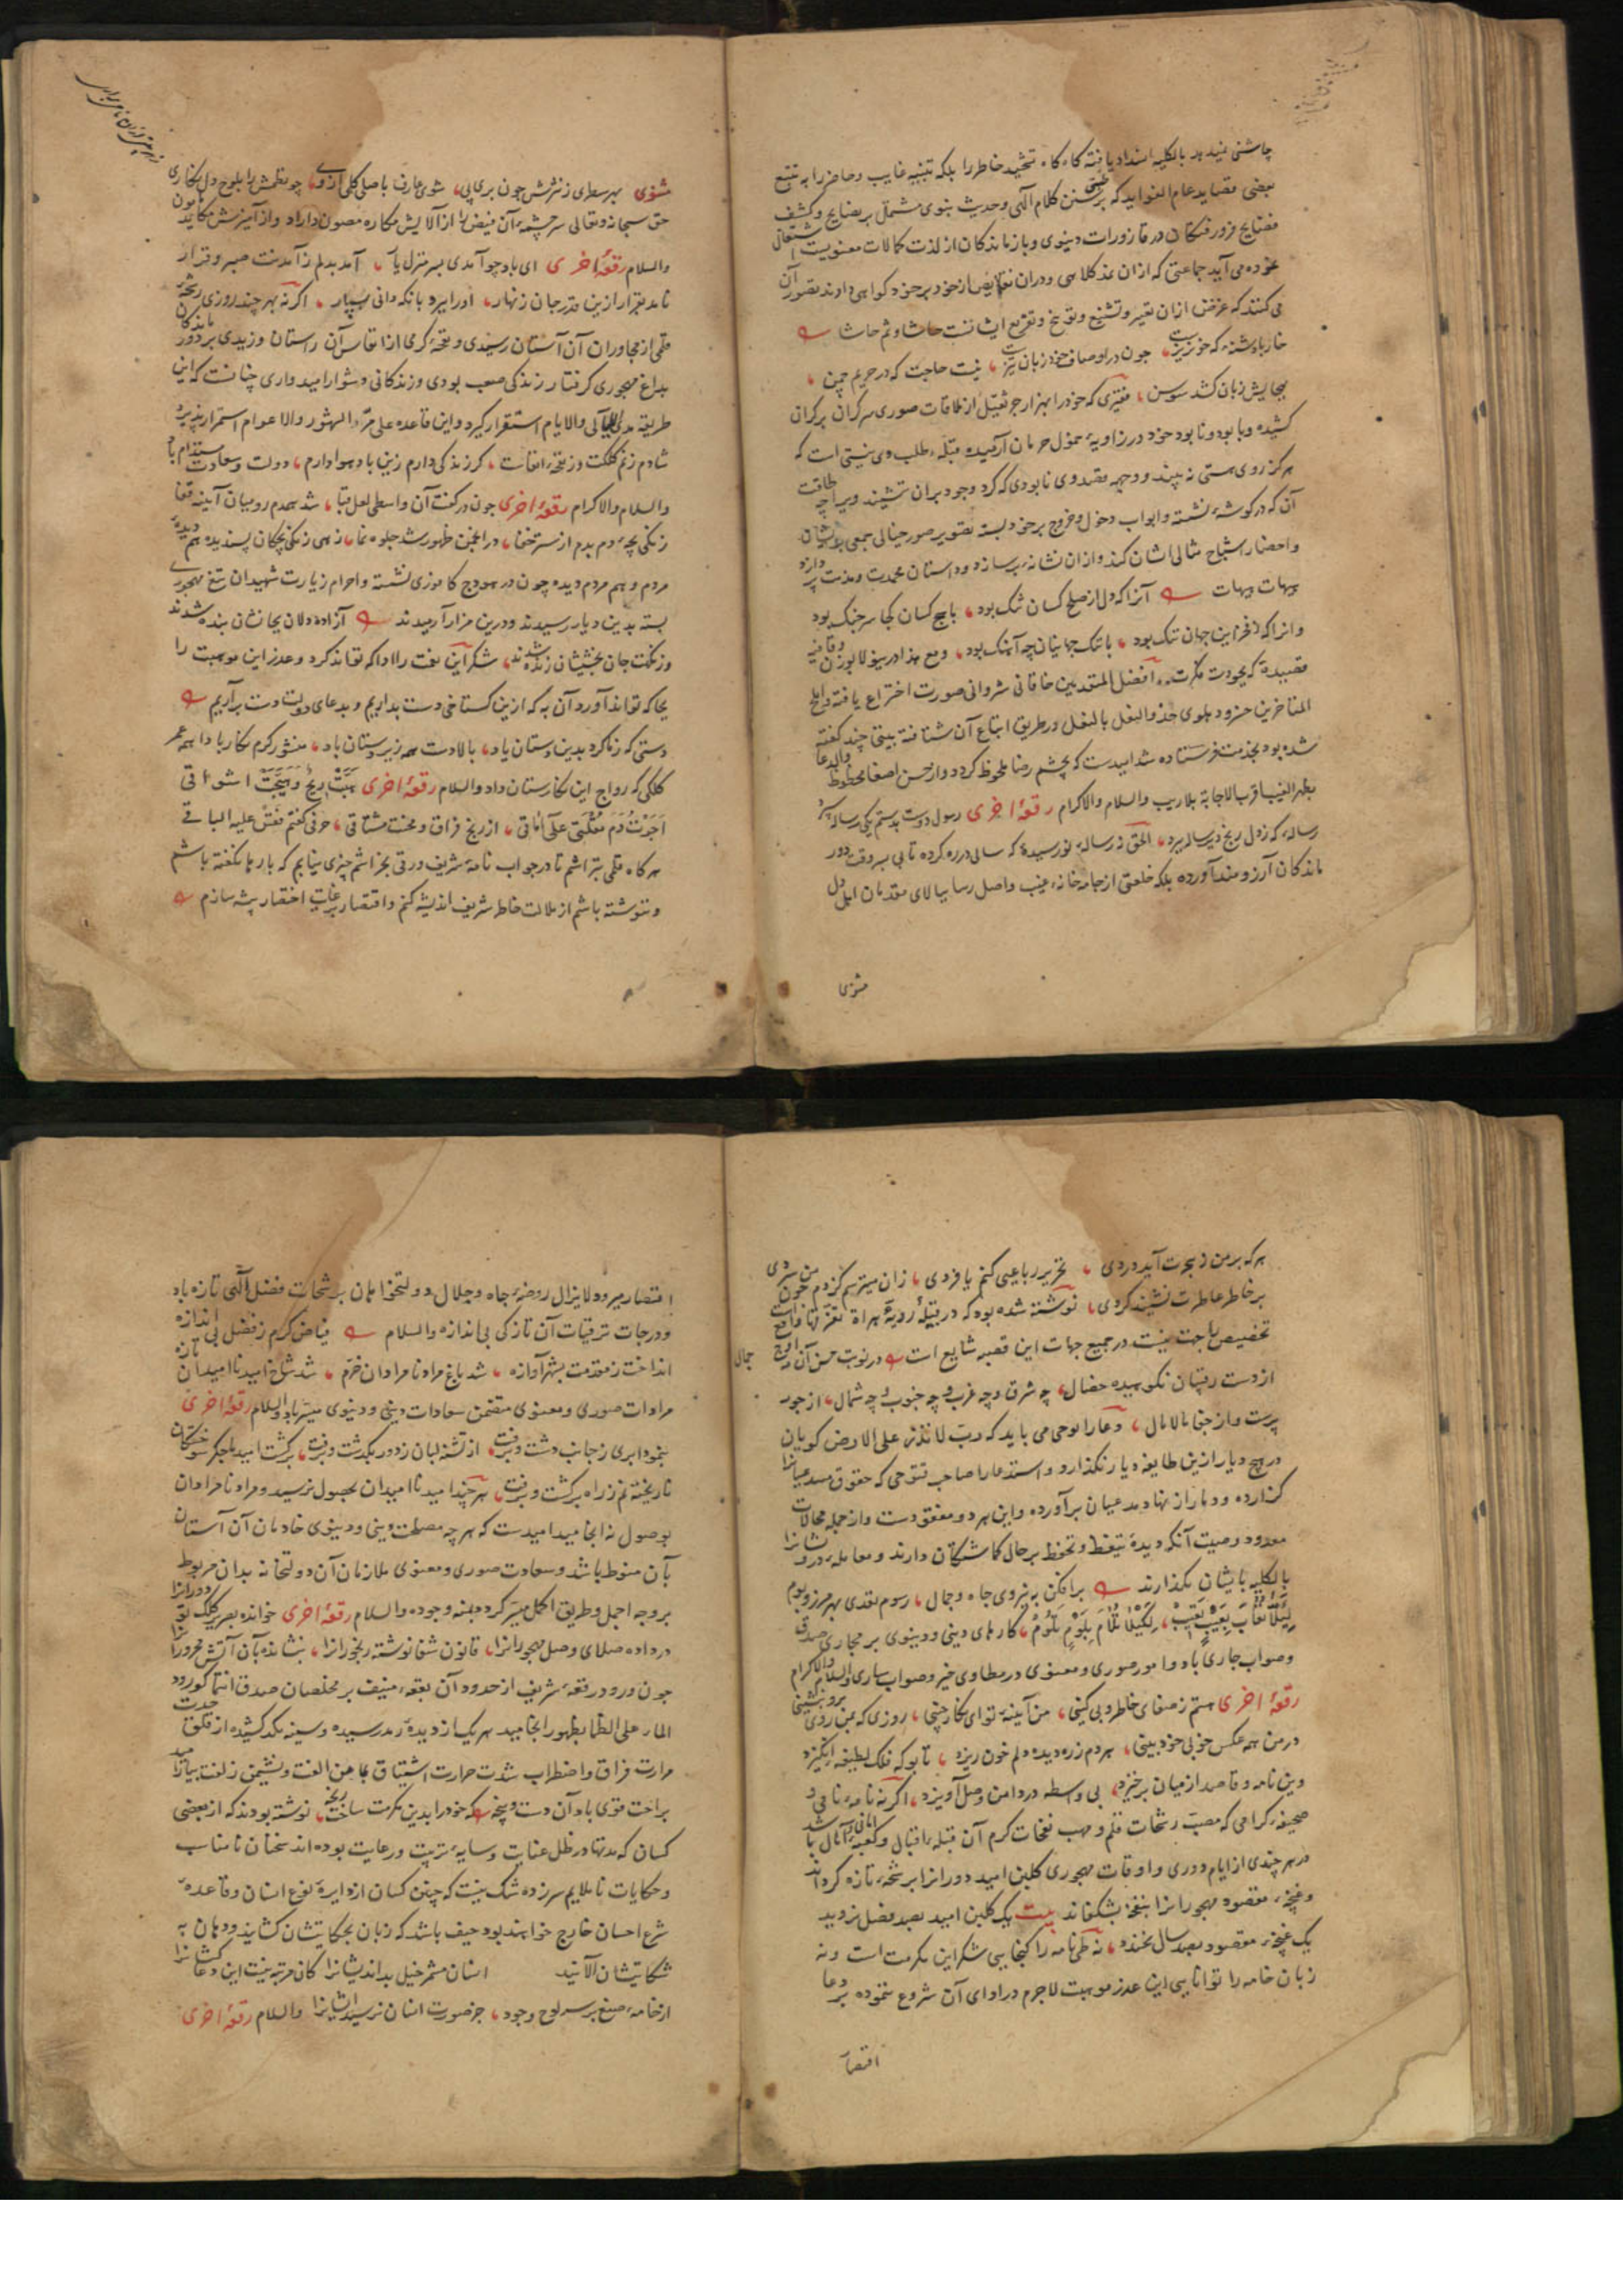 چاشنی نیند بد بالکلیه انسداد یافته گاه گاه تشحیذ خاطر را بلکه تنبیه غایب و حاضر را به تتبع
بعضی قصاید عام الفواید که برسنن کلام الهی و حدیث نبوی مشتمل بر نصایح و کشف
فضایح فرورفتگان در قاذورات دنیوی و بازماندگان از لذت کمالات معنویست اشتغال
نموده می آید جماعتی که از ان بند کلاهی و در ان نقایص از خود بر خود گواهی دارند تصور آن
می کنند که غرض از ان تعییر و تشنیع و توبیخ و تقریع ایشانست حاشا و ثم حاشا
خار با دشنه که خونریزست چون در اوصاف خود زبان تیزست نیست حاجت که در حریم چمن
بهجایش زبان کشد سوسن فقیری که خود را بهزار جر ثقیل از ملاقات صوری سرگران برکران
کشیده و با بود و نابود خود در زاویه خمول حرمان آرمیده قبله طلب وی نیستی است که
هرگز روی هستی نه بیند و وجهه مقصد وی نابودی که گرد وجود بر ان ننشیند ویرا چه طاقت
آن که در گوشه نشسته و ابواب دخول و خروج بر خود بسته تصویر صور خیالی جمعی پریشان
و احضار اشباح مثالی اشان کند و از ان نشانه برسازد و داستان محمدت و مذمت پردازد
هیهات هیهات آنرا که دل از صلح کسان تنگ بود با هیچ کسان کجا سر جنگ بود
وانرا که ز فخر این جهان ننگ بود با تنگ جهانیان چه آهنگ بود و مع هذا درینولا بوزن و قافیه
قصیده که بجودت فکرت افضل المتقدمین خاقانی شروانی صورت اختراع یافته و املح
المتاخرین خسرو دهلوی حذو النعل بالنعل در طریق اتباع آن شتافته بیتی چند گفته
شده بود بخدمت فرستاده شد امیدست که بچشم رضا ملحوظ گردد و از حسن اصغا محظوظ والدعا
بظهر الغیب اقرب الاجابة بلاریب والسلام والاکرام رقعهٔ اخری رسول دوست بدستم یکی رساله سپرد
رساله که ز دل رنج دیرساله ببرد الحق نه رساله نورسیدهٔ که سالی در ره کرده تا بی سر وقت دور
ماندگان آرزومند آورده بلکه خلعتی از جامه خانه غیب واصل رسا ببالای مقدمان اهل دل
مثنوی
مثنوی بهر سطری ز نثرش چون بری پی شوی عارف باصل کلی از وی چو نظمش را بلوح دل نگاری
حق سبحانه و تعالی سرچشمه آن فیض را از آلایش مکاره مصون دارد و از آمیزش مکاید مامون
والسلام رقعهٔ اخری ای باد چو آمدی بسر منزل یار آمد بدلم ز آمدنت صبر و قرار
نامد بقرار ازین قدر جان زنهار او را ببر و بانکه دانی بسپار اگر نه بهر چند روزی رشحه
قلمی از مجاوران آن آستان رسیدی و نفحه کرمی از انفاس آن راستان وزیدی بر دور ماندگان
بداغ مهجوری گرفتار زندگی صعب بودی و زندگانی دشوار امیدواری چنانست که این
طریقه مدی اللیالی والایام استقرار گیرد و این قاعده علی مر الشهور والاعوام استمرار پذیرد
شادم ز نم کلکت و ز نفحه انفاست گر زندگی دارم زین باد و هوا دارم دولت و سعادت مستدام باد
والسلام والاکرام رقعهٔ اخری چون در کفت آن واسطی لعل قبا شد همدم رومیان آیینه قفا
زنگی بچه دم بدم از ستر خفا در انجمن ظهور شد جلوه نما زهی زنگی بچکان پسندیده هم دیده
مردم و هم مردم دیده چون در هودج کاموزی نشسته و احرام زیارت شهیدان تیغ مهجوری
بسته بدین دیار رسیدند و درین مزار آرمیدند آزاده دلان بجانشان بنده شدند
وز نکهت جان بخششان زنده شدند شکر این نعمت را ادا که تواند کرد و عذر این موهبت را
بجا که تواند آورد آن به که ازین گستاخی دست بداریم و بدعای دولت دست برآریم
دستی که رفم کرد بدین دستان باد بالا دست همه زبردستان باد منشور کرم نگار بادا همه عمر
کلکی که رواج این نگارستان داد والسلام رقعهٔ اخری هبّت ریح وهیّجت اشواقی
اجرت دم مقلتی علی آماقی از رنج فراق و محنت مشتاقی حرفی گفتم فقس علیه الباقی
هرگاه قلمی بتراشم تا در جواب نامه شریف ورقی بخراشم چیزی نیابم که بارها نگفته باشم
و ننوشته باشم از ملالت خاطر شریف اندیشه کنم و اقتصار بر غایت اختصار پیشه سازم
هر که بر من ز هجرت آید دردی تحریر رباعیی کنم یا فردی زان میترسم کز دم چون من سردی
بر خاطر عاطرت نشیند گردی نوشته شده بود که در قبیلهٔ رویهٔ هراة تفرقها واقع است
تخصیص حاجت نیست در جمیع جهات این قصبه شایع است در نوبت حسن آن مه اوج جمال
از دست رقیبان نکوهیده خصال چه شرق و چه غرب و چه جنوب و چه شمال از جور
پرست و از جفا مالامال دعا را نوحی می باید که رب لا تذر علی الارض گویان
در هیچ دیار ازین طایفه دیار نگذارد و استدعا را صاحب فتوحی که حقوق مدعیانرا
گزارده و دمار از نهاد مدعیان برآورده و این هر دو مفقودست و از جمله محالات
معدود وصیت آنکه دیدهٔ تیقظ و تحفظ بر حال گماشتگان دارند و معامله درویشانرا
بالکلیه بایشان نگذارند برافکن به نیروی جاه و جمال رسوم تعدی بهر مرز و بوم
لئلا تعاب بعیب تعیب لکیلا تلام بلوم تلوم کارهای دینی و دنیوی بر مجاری صدق
و صواب جاری باد و امور صوری و معنوی در مطاوی خیر و صواب ساری والسلام والاکرام
رقعهٔ اخری هستم ز صفای خاطر و بی کینی من آینه تو ای نگار چینی روزی که بمن روی برو بنشینی
در من همه عکس خوبی خود بینی هر دم ز ره دیده دلم خون ریزد تا بو که فلک لطیفهٔ انگیزد
وین نامه و قاصد از میان برخیزد بی واسطه در دامن وصل آویزد اگر نه نامه نامی و
صحیفه گرامی که مصب رشحات قلم و مهب نفحات کرم آن قبله اقبال و کعبه امانی و آمال باشد
در هر چندی از ایام دوری و اوقات مهجوری گلبن امید دورانرا برشحه تازه گرداند
و غنچه مقصود مهجورانرا بنفخهٔ بشکفاند بیت یک گلبن امید بصد فصل نروید
یک غنچه مقصود بصد سال نخندد نه طی نامه را گنجایی شکر این مکرمت است و نه
زبان خامه را توانایی این عذر موهبت لاجرم در ادای آن شروع ننموده بر دعا
اقتصار
اقتصار میرود لایزال روضه جاه و جلال دولتخواهان برشحات فضل الهی تازه باد
و درجات ترقیات آن تازگی بی اندازه والسلام فیاض کرم ز فضل بی اندازه
انداخت ز مقدمت بشهر آوازه شد باغ مراد نامرادان خرم شد شاخ امید ناامیدان تازه
مرادات صوری و معنوی متضمن سعادات دینی و دنیوی میسر باد والسلام رقعهٔ اخری
بنمود ابری ز جانب دشت و برفت از تشنه لبان ز دور بگذشت و برفت بر کشت امید ما جگر سوختگان
ناریخته نم ز راه برگشت و برفت هر چند امید ناامیدان بحصول نرسید و مراد نامرادان
بوصول نه انجامید امیدست که هر چه مصلحت دینی و دنیوی خادمان آن آستان
بآن منوط باشد و سعادت صوری و معنوی ملازمان آن دولتخانه بدان مربوط
بر وجه اجمل و طریق اکمل میسر گردد بمنه و جوده والسلام رقعهٔ اخری خوانده بصریر کلک تو دورانرا
در داده صلای وصل مهجورانرا قانون شفا نوشته رنجورانرا بنشانده بآن آتش محرورانرا
چون ورود رقعه شریف از حدود آن بقعه منیف بر مخلصان صدق انتما کورود
الماء علی الظما بظهور انجامید هر یک از دیدهٔ رمد رسیده و سینه کمد کشیده از قلق حدت
مرارت فراق و اضطراب شدت حرارت اشتیاق بمامن الفت و نشیمن زلفت بیارامید
براحت قوی باد آن دست و پنجه که خود را بدین مکرمت ساخت رنجه نوشته بودند که از بعضی
کسان که مدتها در ظل عنایت و سایه تربیت و رعایت بوده اند سخنان نامناسب
و حکایات ناملایم سر زده شک نیست که چنین کسان از دایرهٔ نوع انسان و قاعدهٔ
شرع احسان خارج خواهند بود حیف باشد که زبان بحکایتشان گشایند و دهان به
شکایتشان آلایند انسان مشمر خیل بد اندیشانرا کان مرتبه نیست این دغا کیشانرا
از خامه صنع بر سر لوح وجود جز صورت انسان نرسید ایشانرا والسلام رقعهٔ اخری